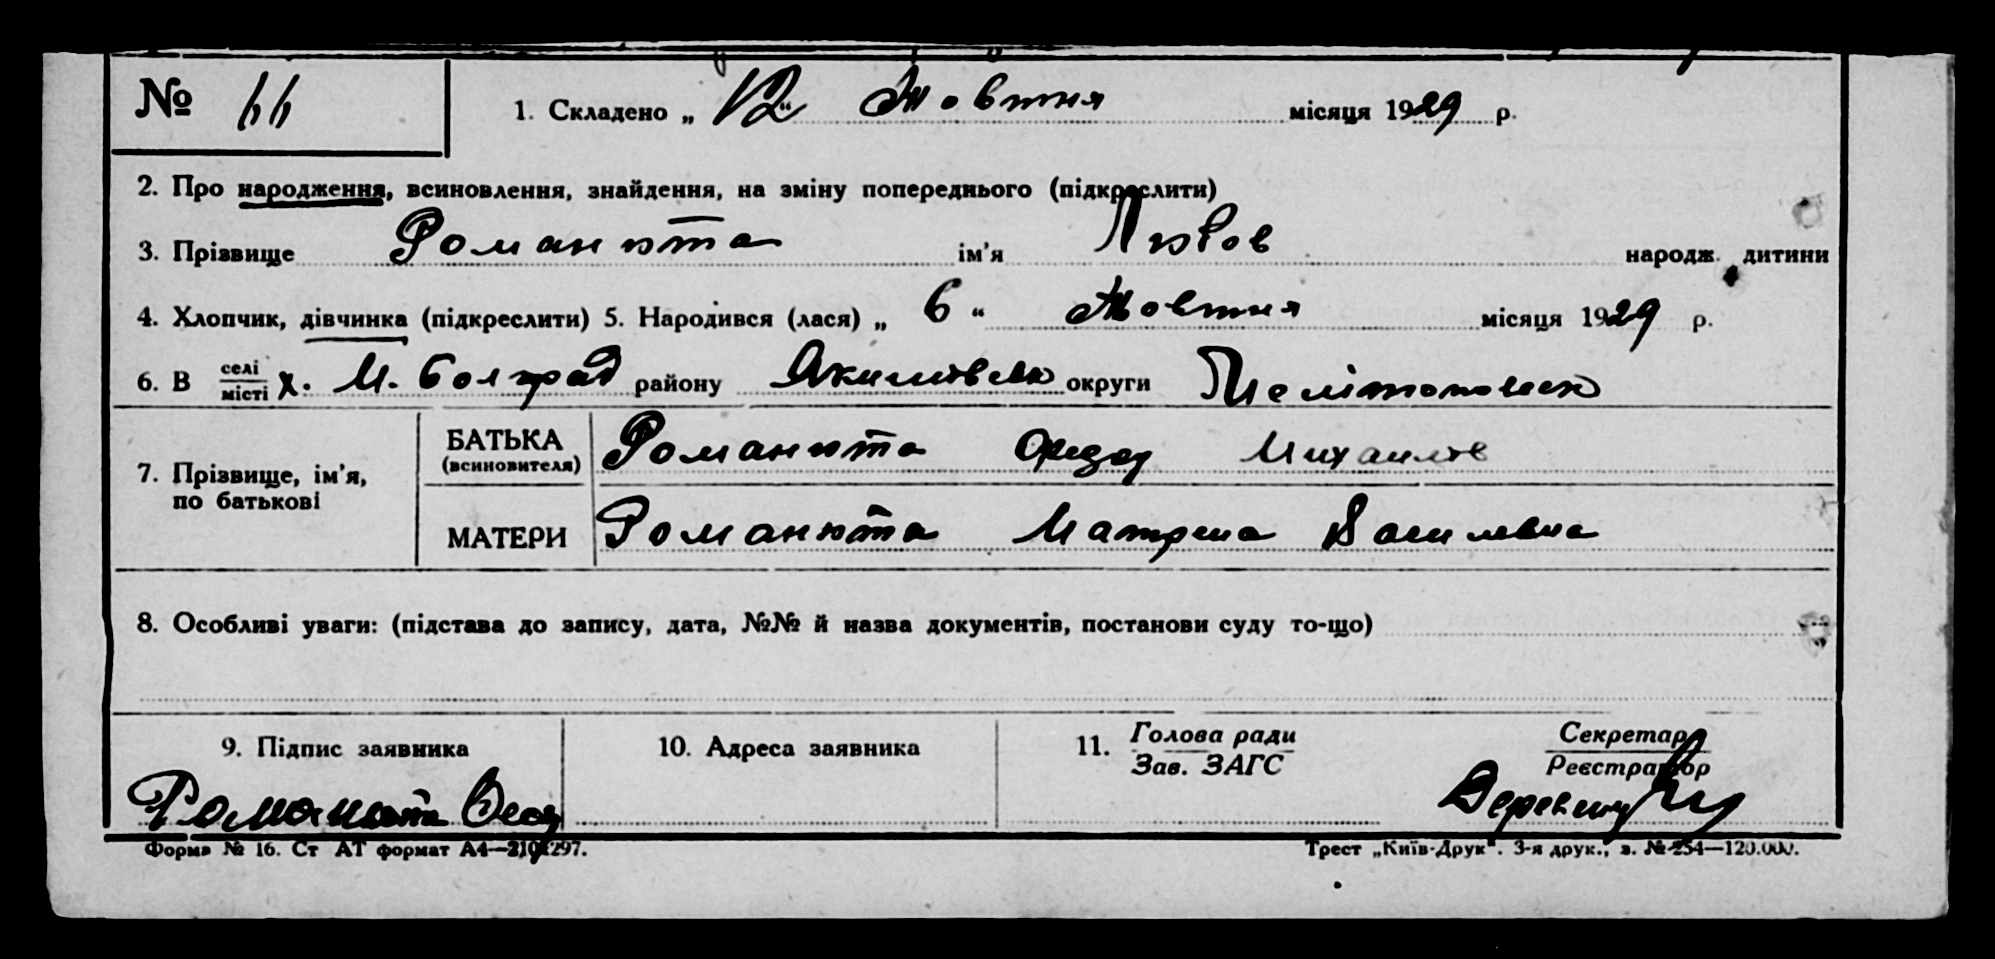 № 66 1. Складено „ 12 “ Жовтня місяця 1929 р.
2. Про народження, всиновлення, знайдення, на зміну попереднього (підкреслити)
3. Прізвище Романюта ім'я Любов народж. дитини
4. Хлопчик, дівчинка (підкреслити) 5. Народився (лася) „ 6 “ Жовтня місяця 1929 р.
6. В селі/місті х. М. Болград району Якимовськ округи Мелітопольск
7. Прізвище, ім'я, по батькові
БАТЬКА (всиновителя) Романюта Федор Михайлов
МАТЕРИ Романюта Матрена Василевна
8. Особливі уваги: (підстава до запису, дата, №№ й назва документів, постанови суду то-що)
9. Підпис заявника 10. Адреса заявника 11. Голова ради / Зав. ЗАГС Секретар / Реєстратор
Романюта
Форма № 16. Ст АТ формат А4—210×297. Трест „Київ-Друк“. 3-я друк., з. № 254—120.000.